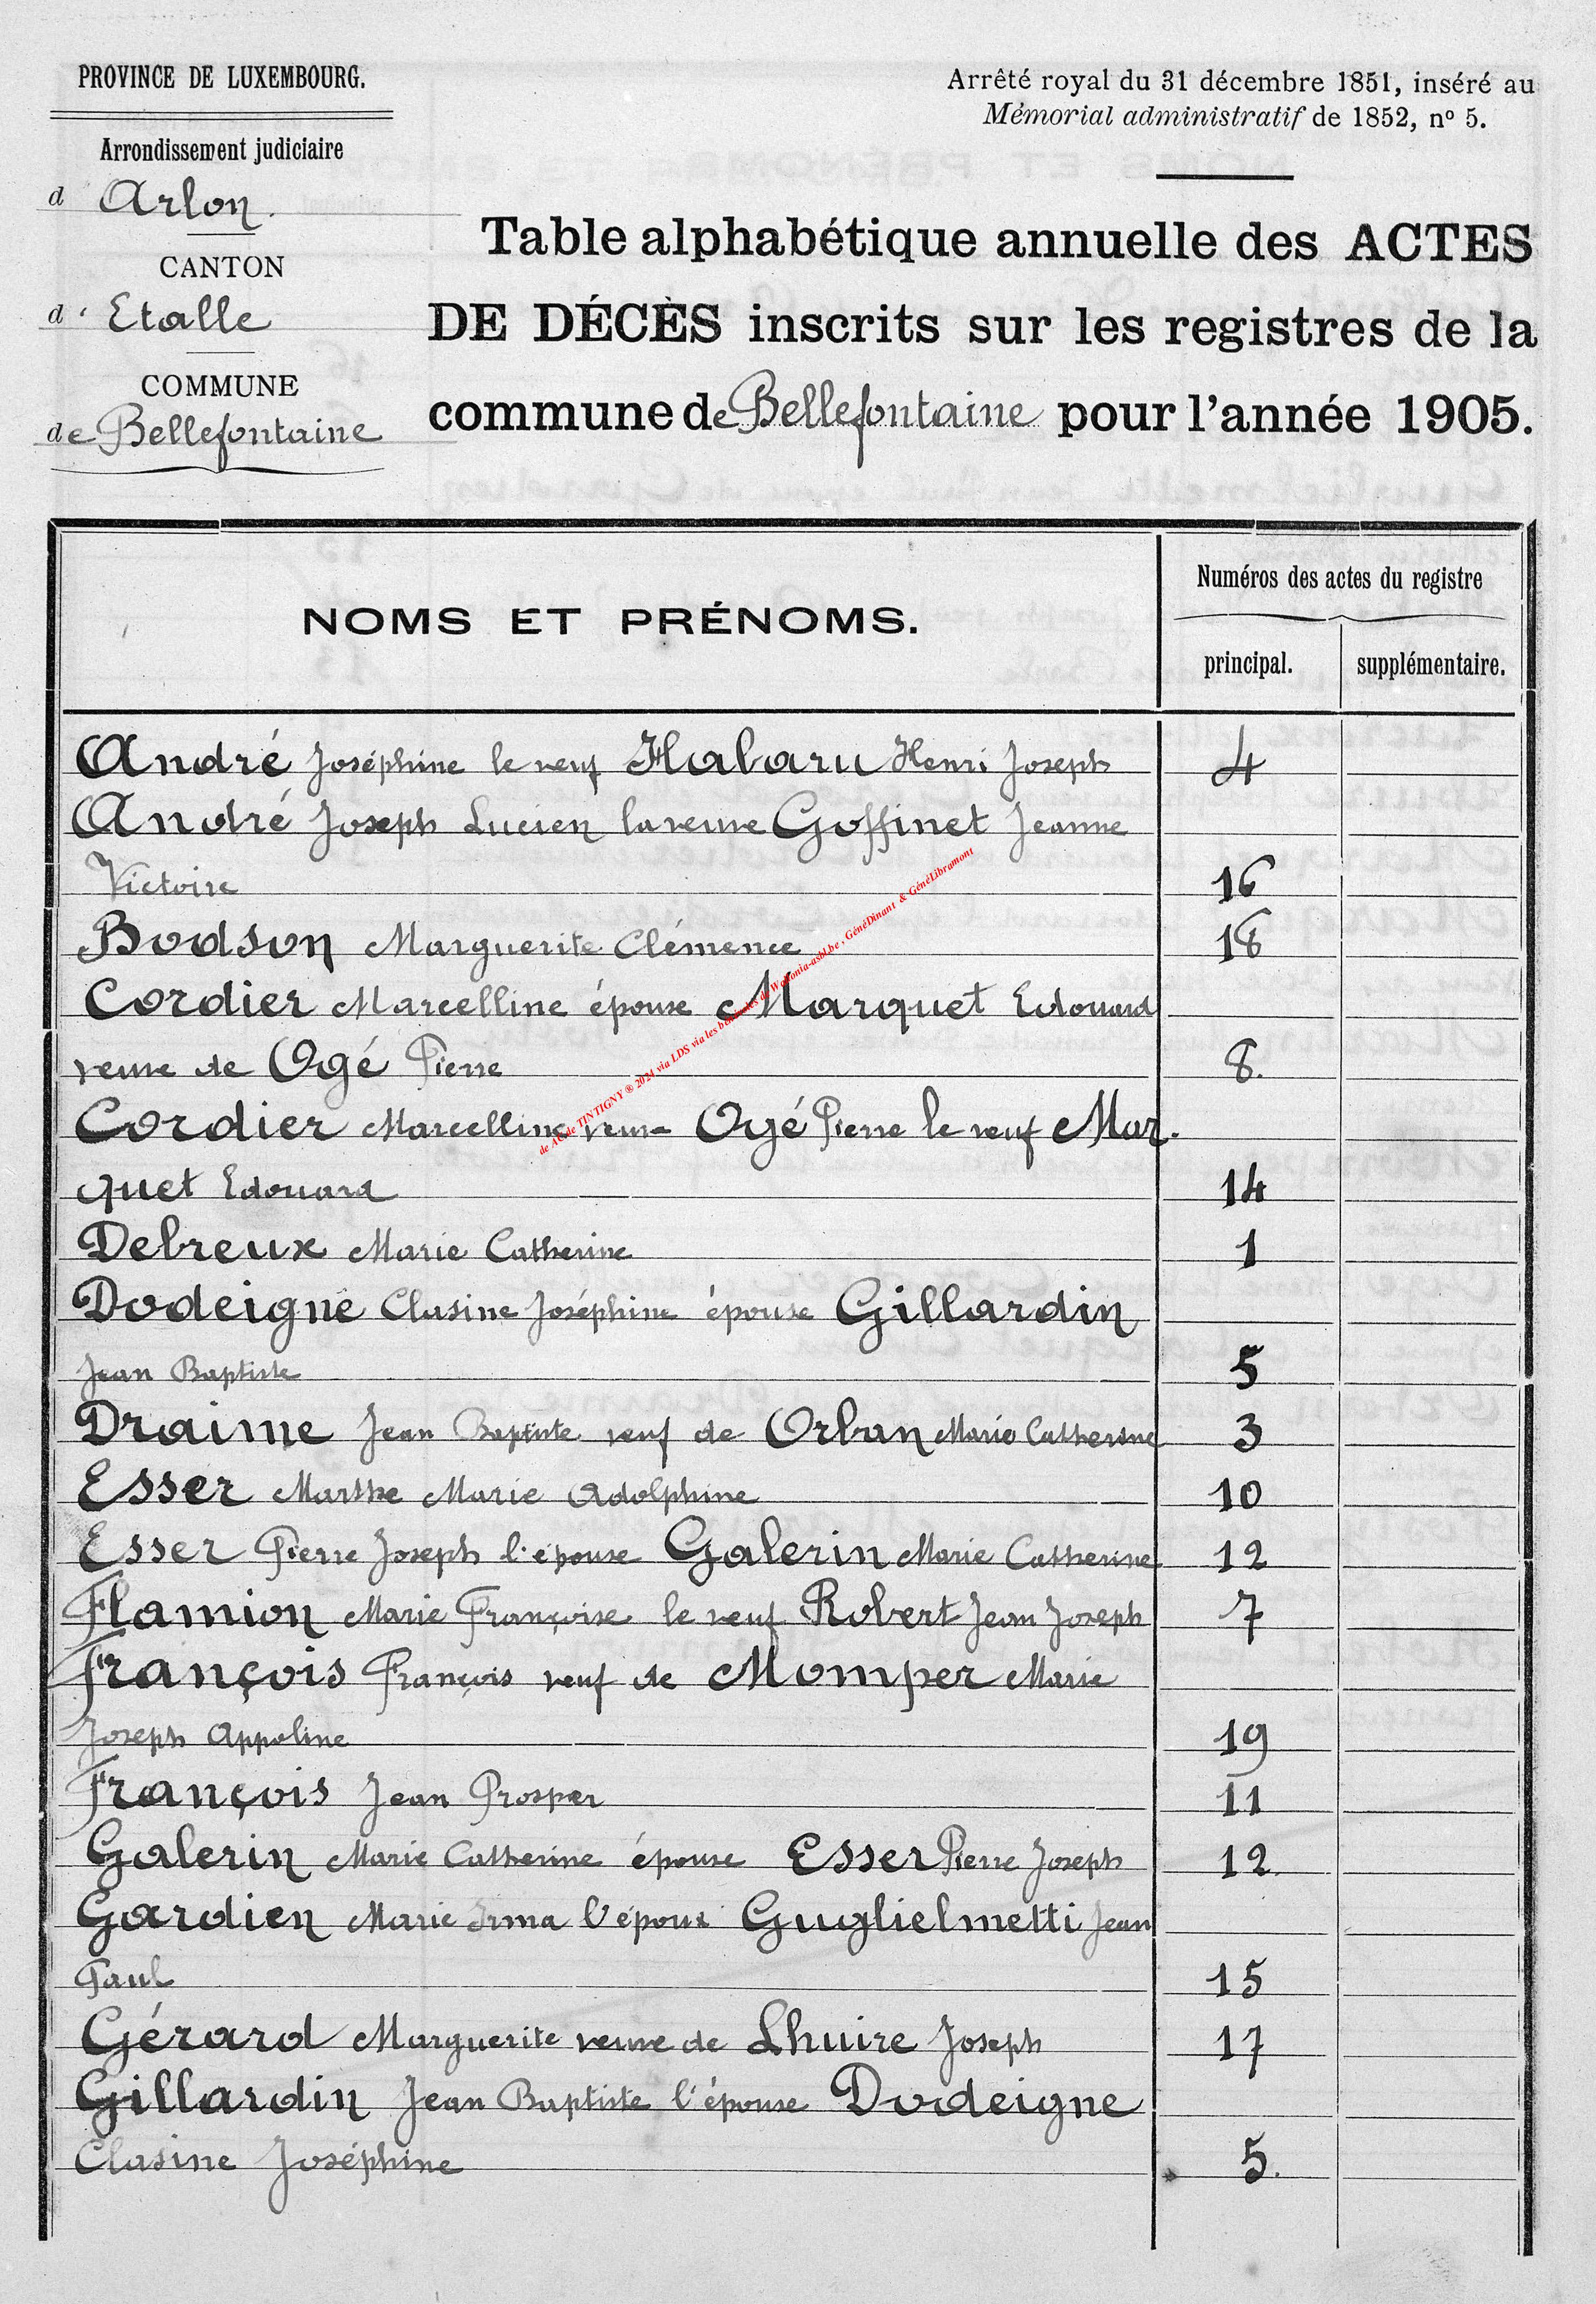 PROVINCE DE LUXEMBOURG.
Arrondissement judiciaire
d Arlon.
CANTON
d' Etalle
COMMUNE
de Bellefontaine
Arrêté royal du 31 décembre 1851, inséré au
Mémorial administratif de 1852, nº 5.
Table alphabétique annuelle des ACTES
DE DÉCÈS inscrits sur les registres de la
commune de Bellefontaine pour l'année 1905.
NOMS ET PRÉNOMS.
Numéros des actes du registre
principal.
supplémentaire.
André Joséphine le veuf Habaru Henri Joseph 4
André Joseph Lucien la veuve Goffinet Jeanne
Victoire 16
Bodson Marguerite Clémence 18
Cordier Marcelline épouse Marquet Edouard
veuve de Ogé Pierre 8.
Cordier Marcelline veuve Ogé Pierre le veuf Mar-
quet Edouard 14
Debreux Marie Catherine 1
Dodeigne Clasine Joséphine épouse Gillardin
Jean Baptiste 5
Draime Jean Baptiste veuf de Orban Marie Catherine 3
Esser Marthe Marie Adolphine 10
Esser Pierre Joseph l'épouse Galerin Marie Catherine 12
Flamion Marie Françoise le veuf Robert Jean Joseph 7
François François veuf de Momper Marie
Joseph Appoline 19
François Jean Prosper 11
Galerin Marie Catherine épouse Esser Pierre Joseph 12
Gardien Marie Irma l'époux Guglielmetti Jean
Paul 15
Gérard Marguerite veuve de Lhuire Joseph 17
Gillardin Jean Baptiste l'épouse Dodeigne
Clasine Joséphine 5.
de AC de TINTIGNY ® 2024 via LDS via les bénévoles de Wallonia-asbl.be , GénéDinant & GénéLibramont